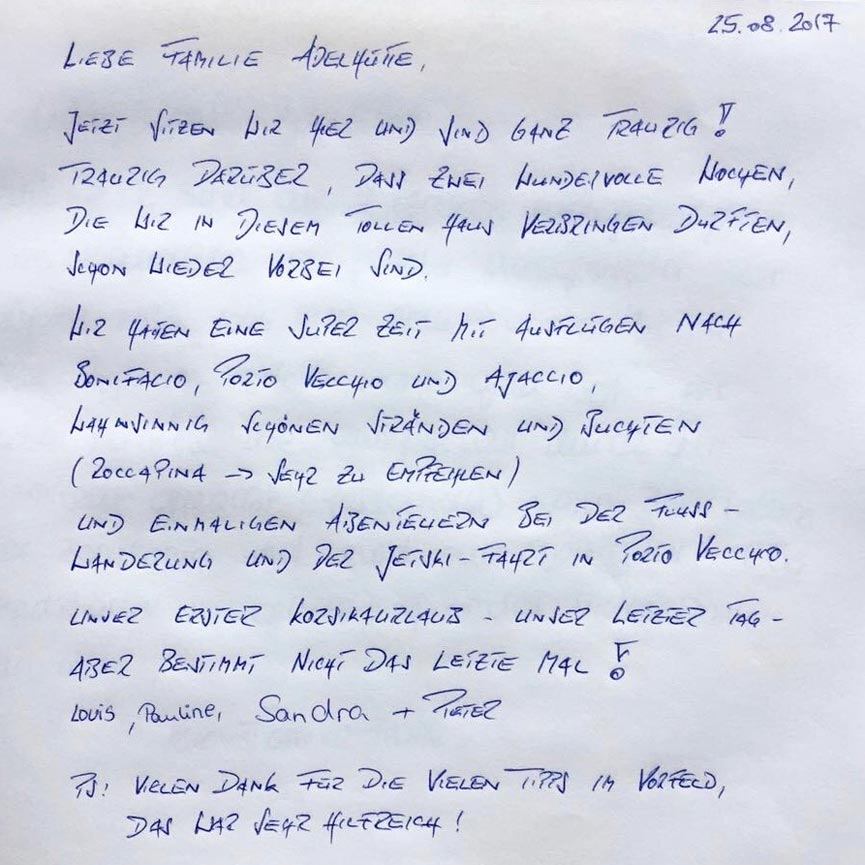 25.08.2017
LIEBE FAMILIE ADELHÜTTE,
JETZT SITZEN WIR HIER UND SIND GANZ TRAURIG!
TRAURIG DARÜBER, DASS ZWEI WUNDERVOLLE WOCHEN,
DIE WIR IN DIESEM TOLLEN HAUS VERBRINGEN DURFTEN,
SCHON WIEDER VORBEI SIND.
WIR HATTEN EINE SUPER ZEIT MIT AUSFLÜGEN NACH
BONIFACIO, PORTO VECCHIO UND AJACCIO,
WAHNSINNIG SCHÖNEN STRÄNDEN UND BUCHTEN
(ROCCAPINA -> SEHR ZU EMPFEHLEN)
UND EINMALIGEN ABENTEUERN BEI DER FLUSS-
WANDERUNG UND DER JETSKI-FAHRT IN PORTO VECCHIO.
UNSER ERSTER KORSIKAURLAUB - UNSER LETZTER TAG -
ABER BESTIMMT NICHT DAS LETZTE MAL!
Louis, Pauline, Sandra + PETER
PS: VIELEN DANK FÜR DIE VIELEN TIPPS IM VORFELD,
DAS WAR SEHR HILFREICH!